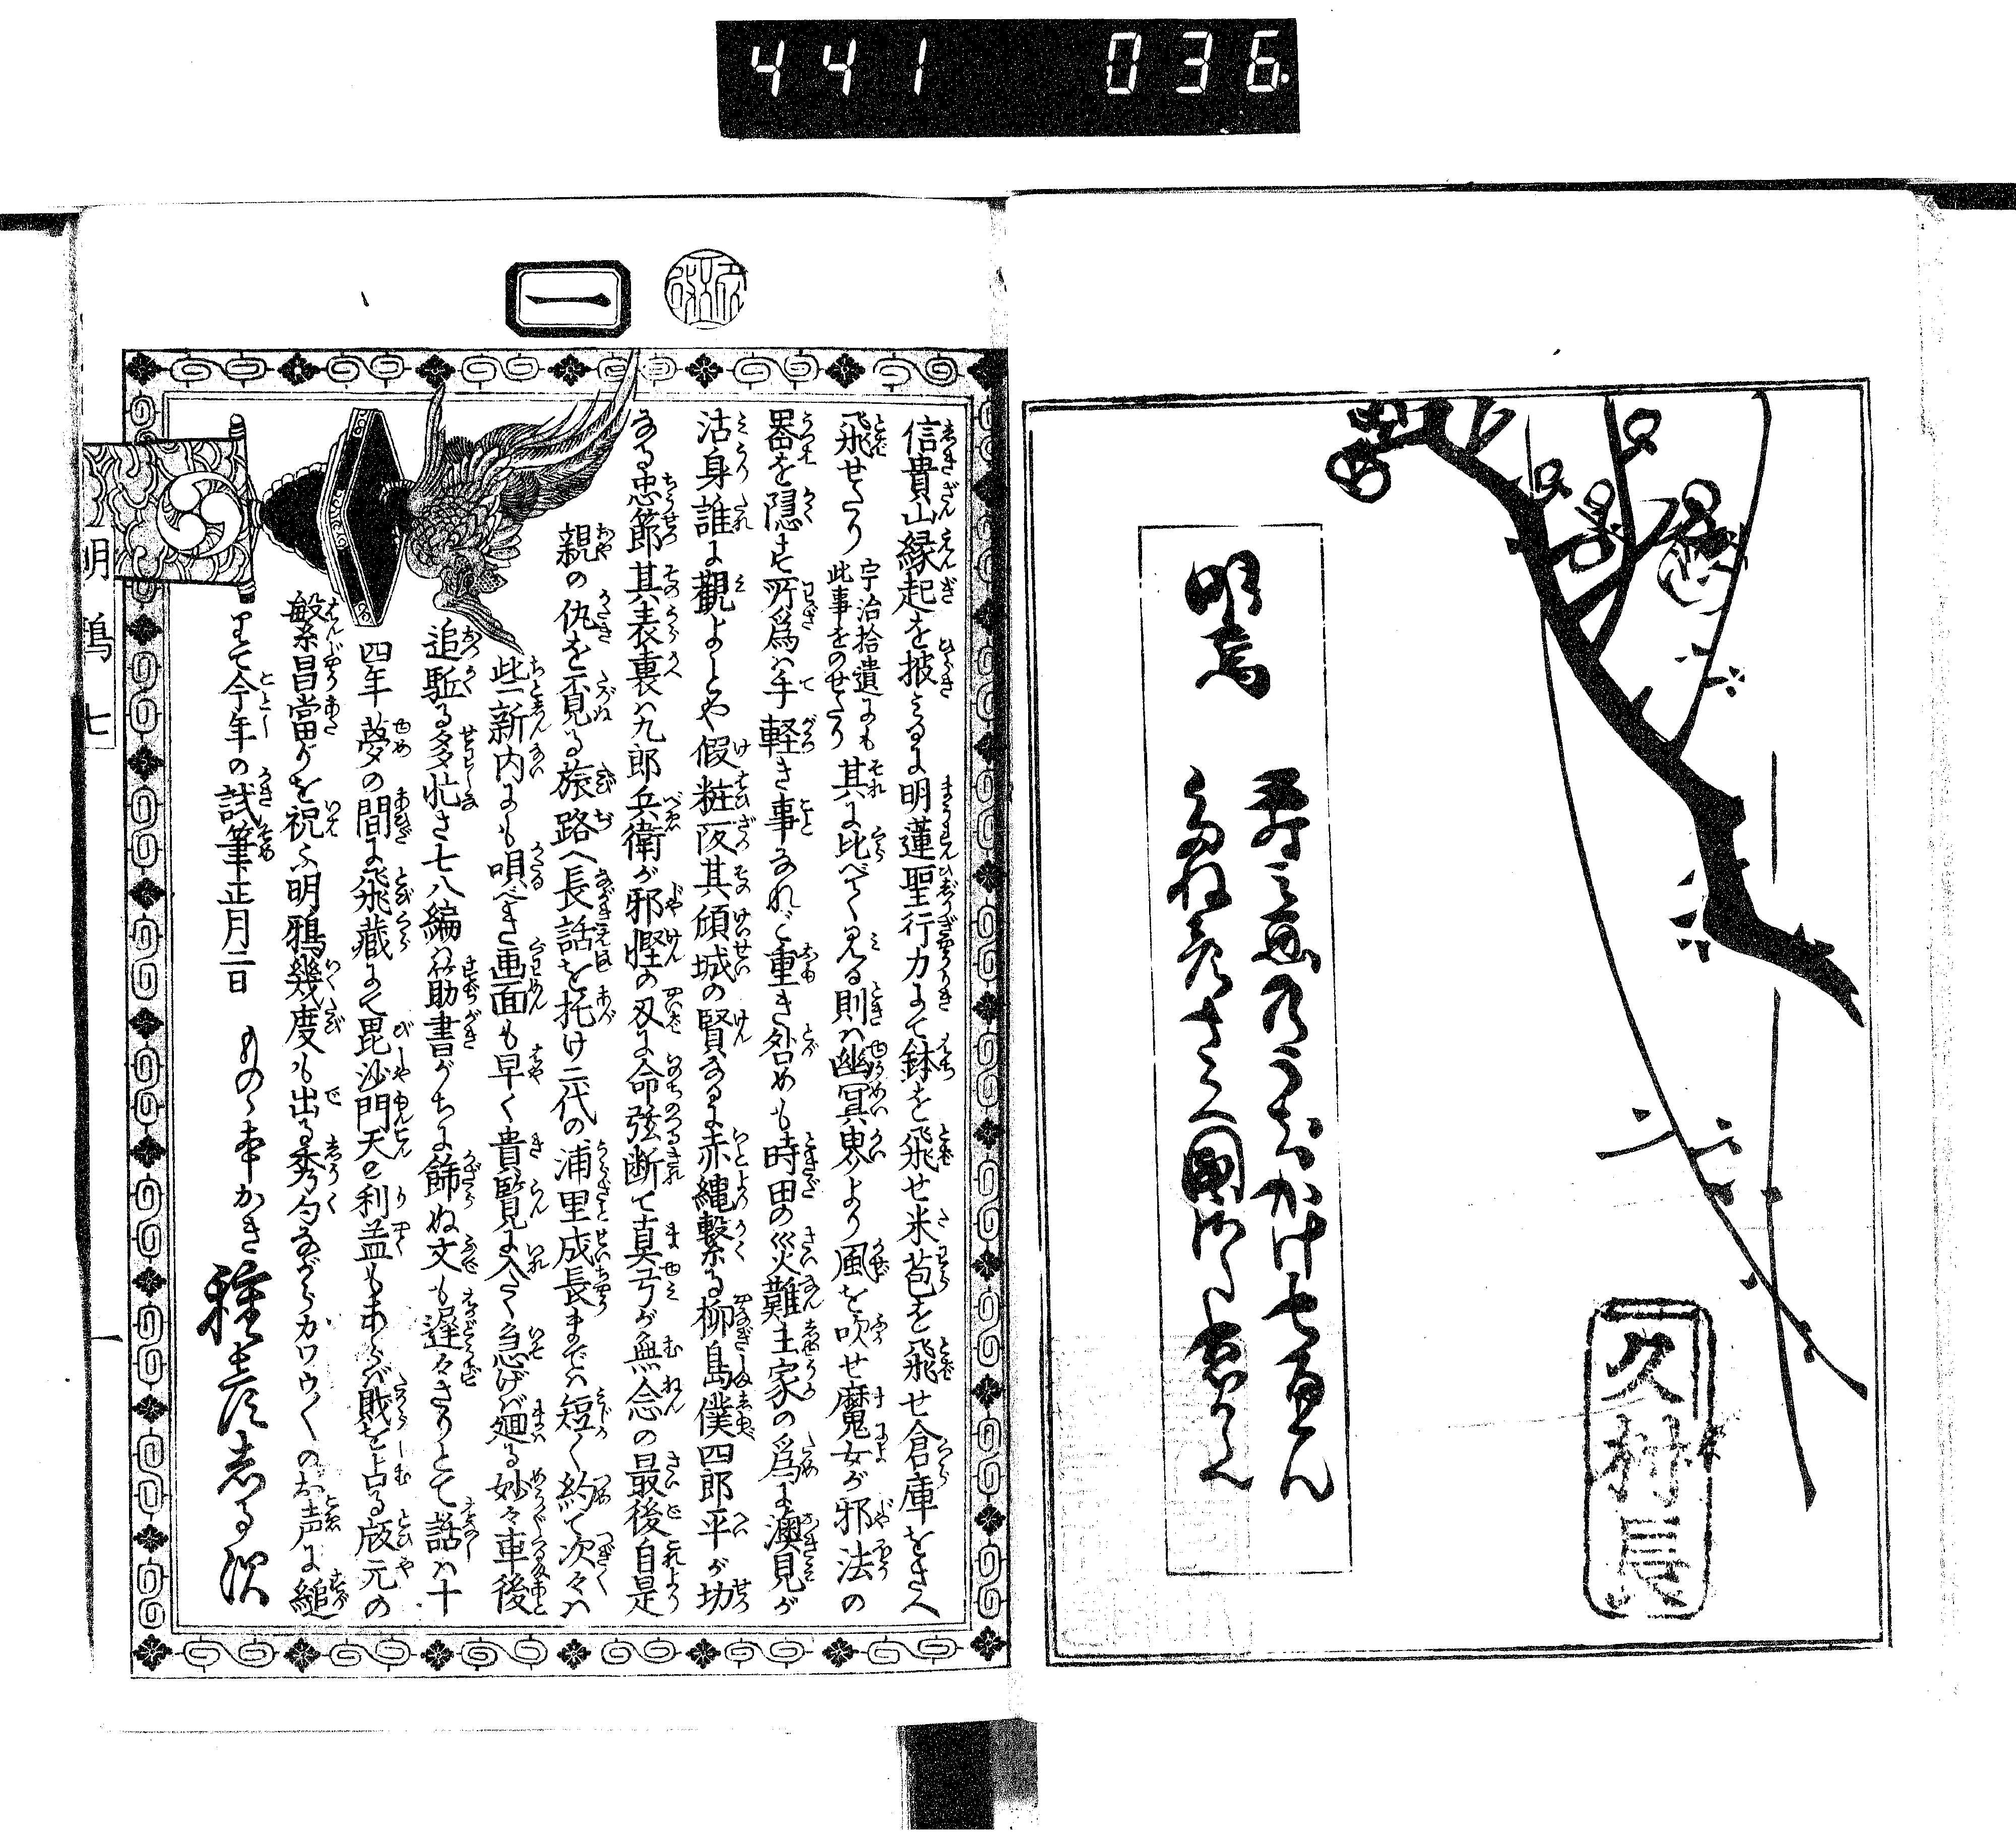 441 036
明烏
久村長
一
信貴山縁起を披みるに明蓮聖行力にて鉢を飛せ米苞を飛せ倉庫をさへ
飛せたり
宇治拾遺にも
此事をのせたり
其に比べて見る則は幽冥界より風を吹せ魔女が邪法の
器を隠す所爲は手軽き事なれど重き咎めも時田の災難主家の爲に澳見が
沽身誰に觀よとや假粧阪其傾城の賢なるに赤縄繋る柳島僕四郎平が切
なる忠節其表裏は九郎兵衛が邪慳の刄に命弦断て真弓が無念の最後自是
親の仇を覓る旅路へ長話を托け二代の浦里成長までは短く約て次々は
此新内にも唄べき画面も早く貴覧に入たく急げば廻る妙々車後
追駈る多忙さ七八編は筋書がちに飾ぬ文も遅々さりとて話は十
四年夢の間に飛藏にて毘沙門天の利益もあらば賊を占る版元の
繁昌當りを祝ふ明鴉幾度も出る秀句ながらカワウ〳〵のお声に縋
りて今年の試筆正月二日
ものゝ本かき
種彦しるす
明鴉七
一